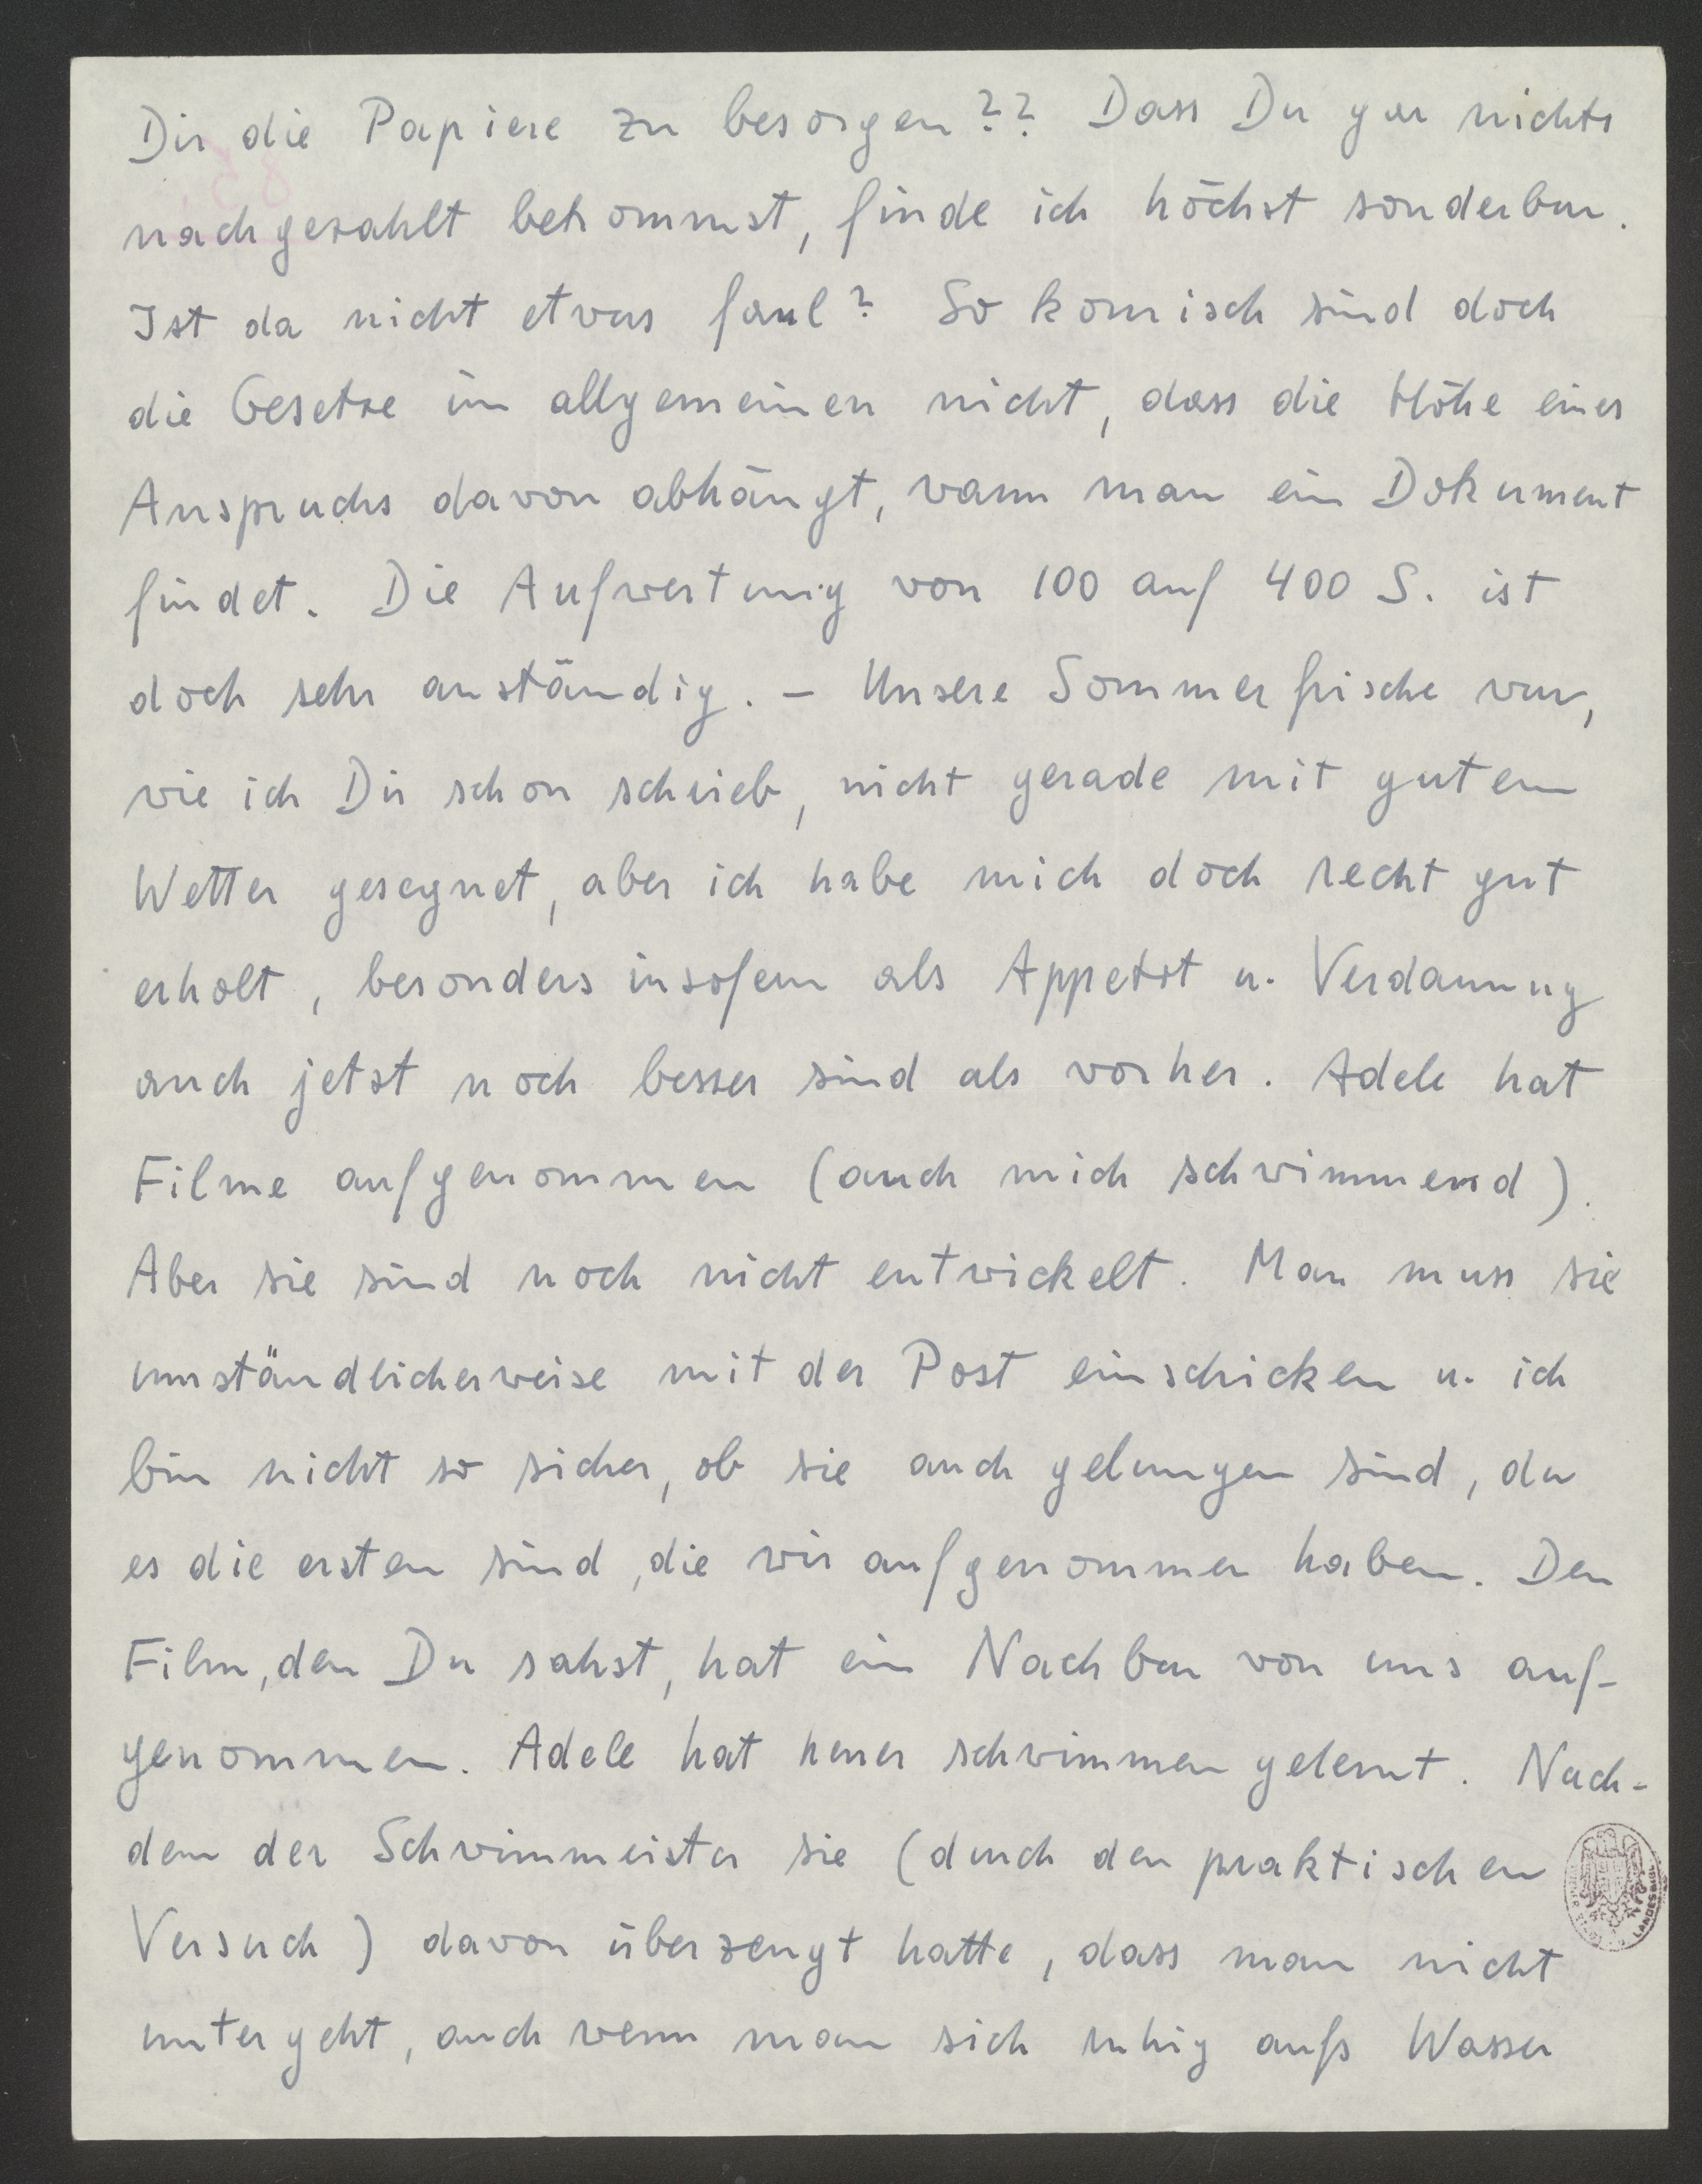 Dir die Papiere zu besorgen?? Dass Du gar nichts
nachgezahlt bekommst, finde ich höchst sonderbar.
Ist da nicht etwas faul? So komisch sind doch
die Gesetze im allgemeinen nicht, dass die Höhe eines
Anspruchs davon abhängt, wann man ein Dokument
findet. Die Aufwertung von 100 auf 400 S. ist
doch sehr anständig. – Unsere Sommerfrische war,
wie ich Dir schon schrieb, nicht gerade mit gutem
Wetter gesegnet, aber ich habe mich doch recht gut
erholt, besonders insofern als Appetit u. Verdauung
auch jetzt noch besser sind als vorher. Adele hat
Filme aufgenommen (auch mich schwimmend).
Aber sie sind noch nicht entwickelt. Man muss sie
umständlicherweise mit der Post einschicken u. ich
bin nicht so sicher, ob sie auch gelungen sind, da
es die ersten sind, die wir aufgenommen haben. Den
Film, den Du sahst, hat ein Nachbar von uns auf-
genommen. Adele hat heuer schwimmen gelernt. Nach-
dem der Schwimmeister sie (durch den praktischen
Versuch) davon überzeugt hatte, dass man nicht
untergeht, auch wenn man sich ruhig aufs Wasser